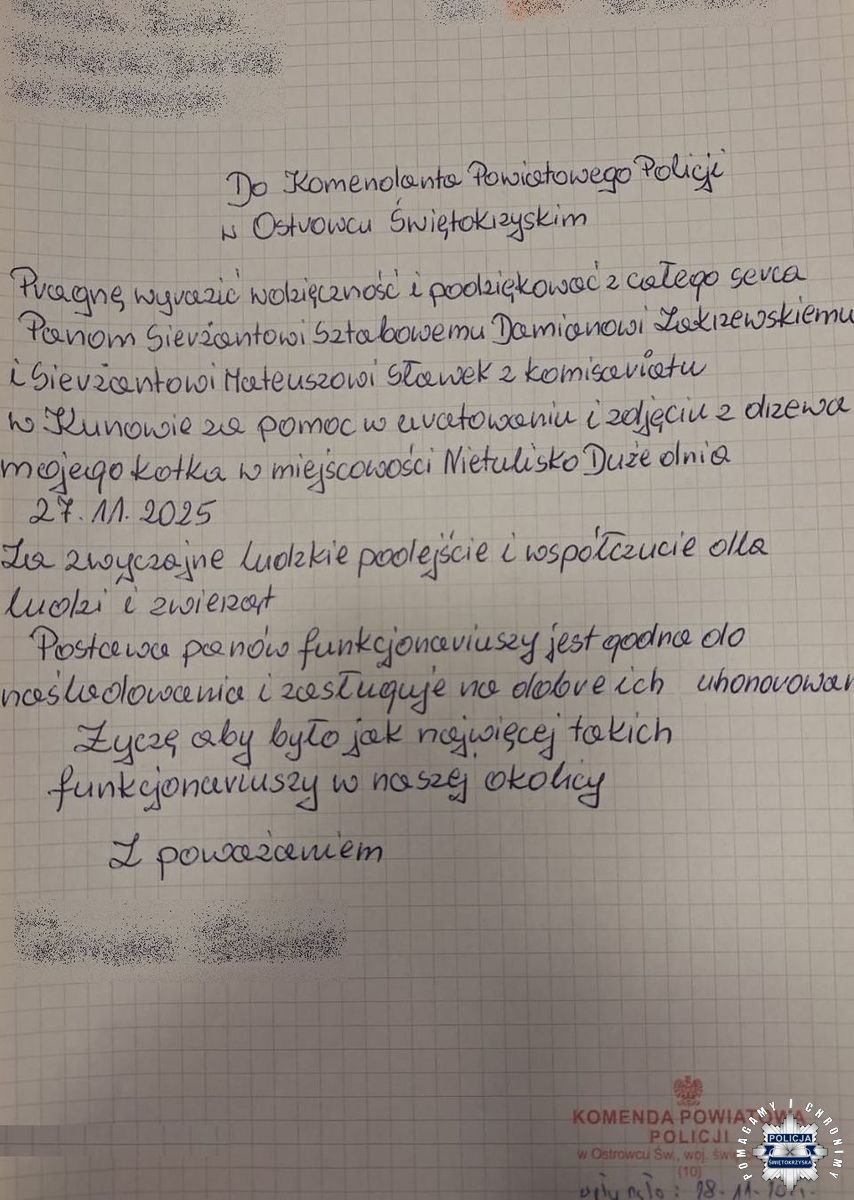 Do Komendanta Powiatowego Policji
w Ostrowcu Świętokrzyskim
Pragnę wyrazić wdzięczność i podziękować z całego serca
Panom Sierżantowi Sztabowemu Damianowi Zakrzewskiemu
i Sierżantowi Mateuszowi Sławek z komisariatu
w Kunowie za pomoc w uratowaniu i zdjęciu z drzewa
mojego kotka w miejscowości Nietulisko Duże dnia
27.11.2025
Za zwyczajne ludzkie podejście i współczucie dla
ludzi i zwierząt
Postawa panów funkcjonariuszy jest godna do
naśladowania i zasługuje na dobre ich uhonorowan
Życzę aby było jak najwięcej takich
funkcjonariuszy w naszej okolicy
Z poważaniem
KOMENDA POWIATOWA
POLICJI
w Ostrowcu Św., woj. św
(10)
wpłynęło: 28.11.
POMAGAMY I CHRONIMY
POLICJA
ŚWIĘTOKRZYSKA